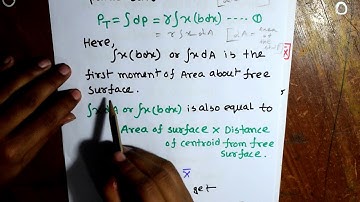 P_T = ∫dp = γ∫x(bdx) ---- ①
= γ∫x dA [dA =
Here,
∫x(bdx) or ∫x dA is the
first moment of Area about free
surface.
or ∫x(bdx) is also equal to
Area of surface × Distance
of centroid from free
surface.
x̄
get